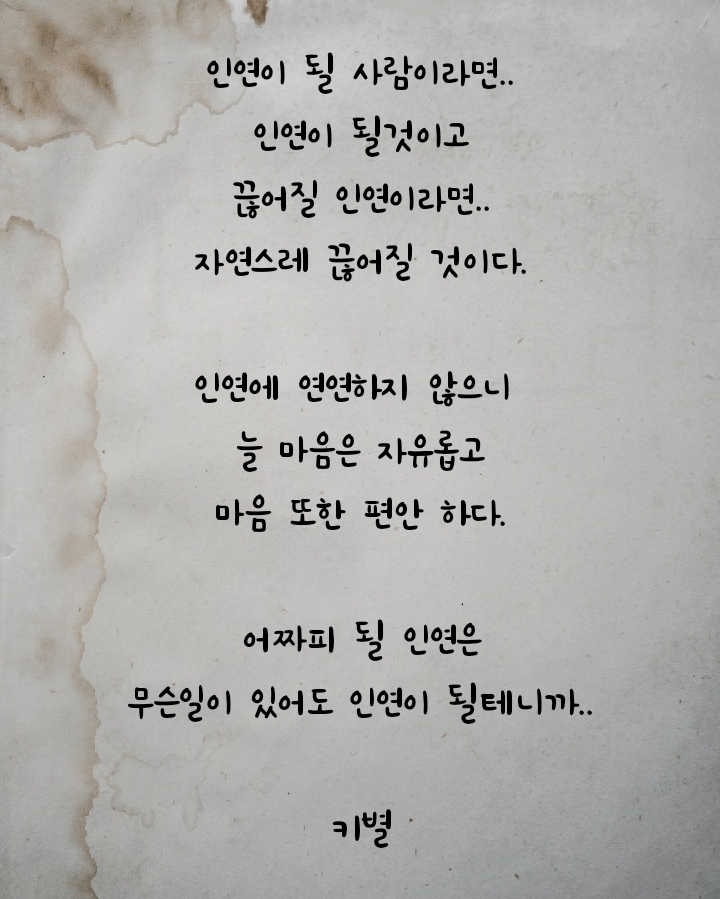 인연이 될 사람이라면..
인연이 될것이고
끊어질 인연이라면..
자연스레 끊어질 것이다.
인연에 연연하지 않으니
늘 마음은 자유롭고
마음 또한 편안 하다.
어짜피 될 인연은
무슨일이 있어도 인연이 될테니까..
키별